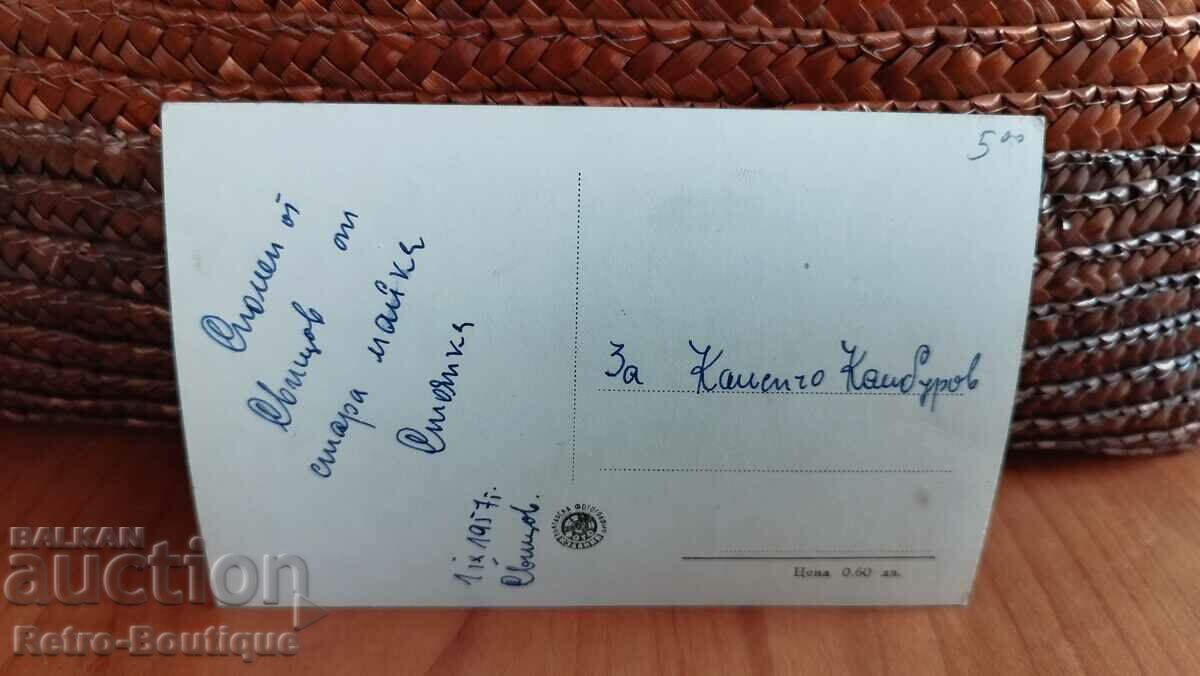 Спомен от
Свищов от
стара майка
Стоянка
1 IX 1957 г.
Свищов.
5 00
За Каменчо Камбуров
Цена 0.60 лв.
BALKAN
auction
Retro-Boutique